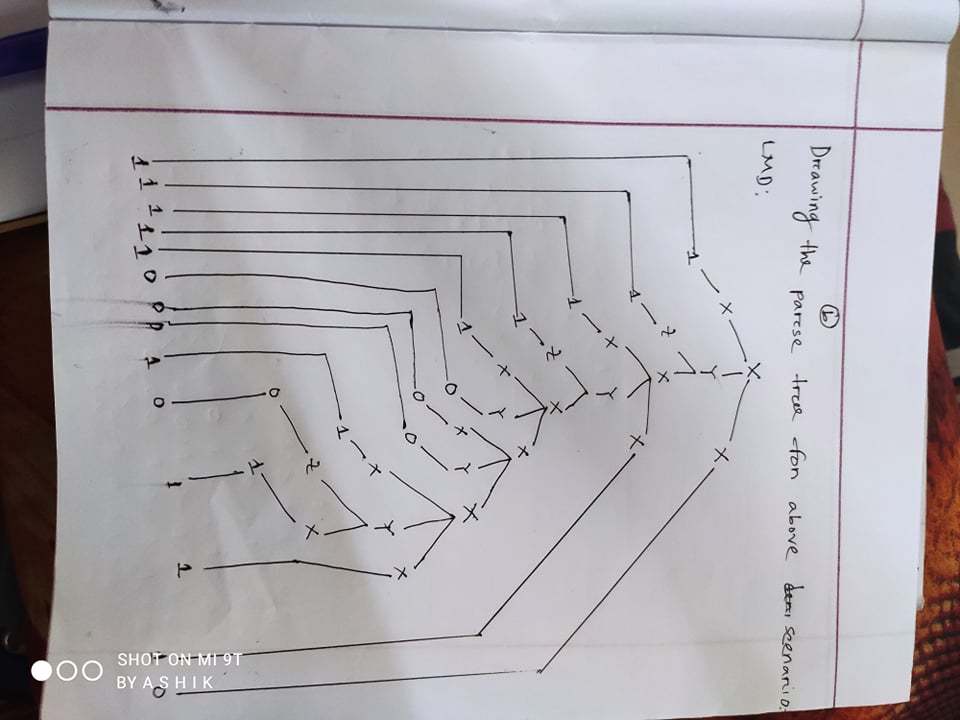 b
Drawing the parse tree for above scenario:
LMD:
X
X Y X
1
Z X
1 X Y X
1
Z X
1 X Y X
1 0 X Y X
0 0 X Y X
1 Z X
0 1
1 1 1 1 1 0 0 0 1 0 1 1 0
SHOT ON MI 9T
BY ASHIK